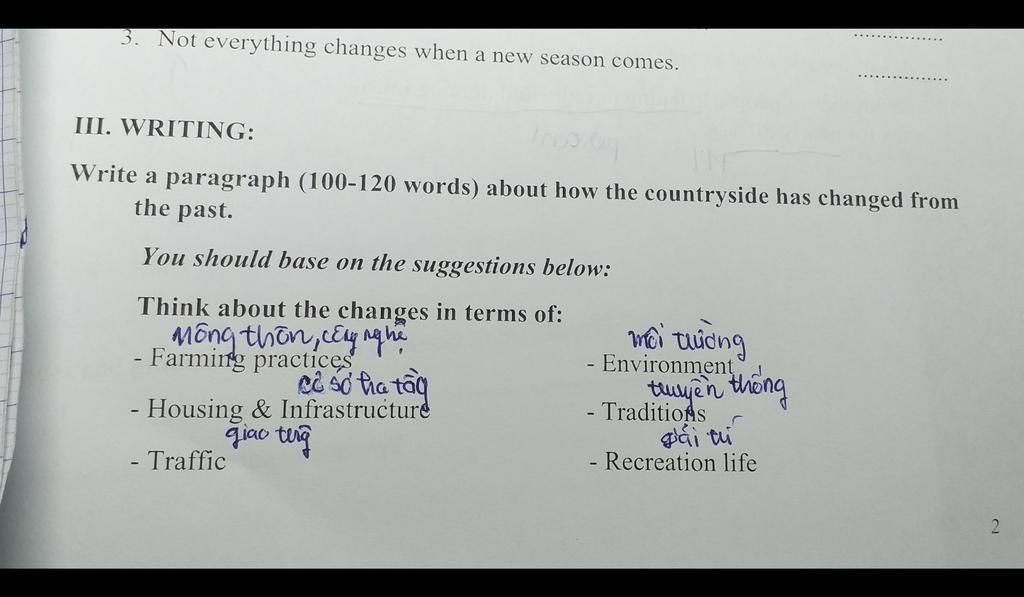 3. Not everything changes when a new season comes.
................
................
III. WRITING:
Write a paragraph (100-120 words) about how the countryside has changed from
the past.
You should base on the suggestions below:
Think about the changes in terms of:
nông thôn, công nghệ
- Farming practices
cơ sở hạ tầng
- Housing & Infrastructure
giao
- Traffic
môi trường
- Environment
truyền thống
- Traditions
giải trí
- Recreation life
2